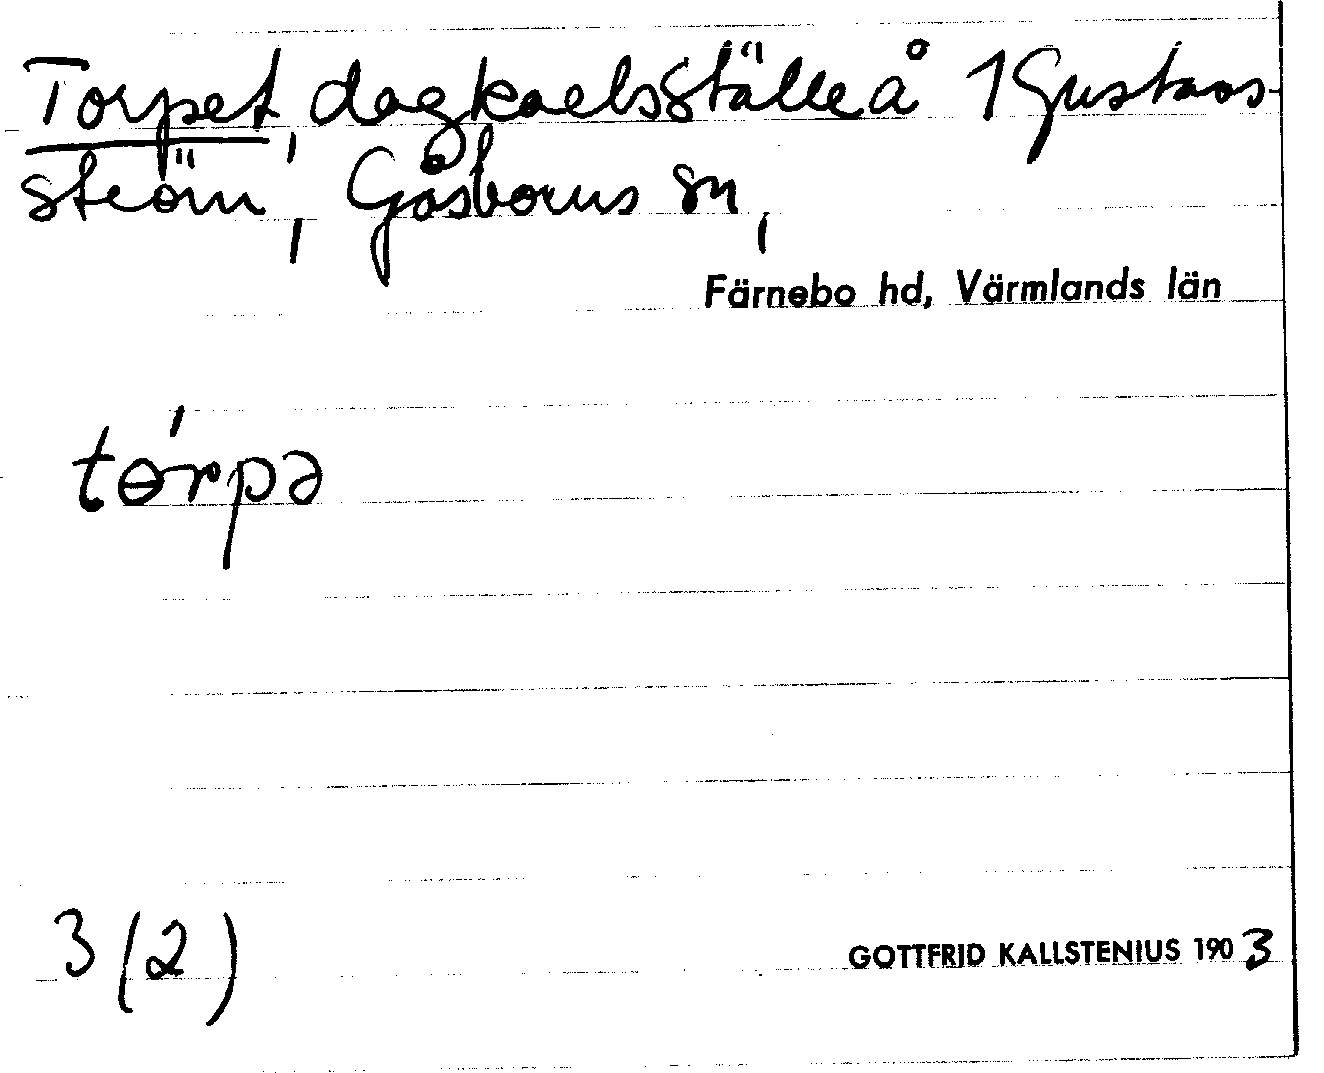 Torpet, dagkarlsställe å 1 Gustavs-
ström, Gåsborns sn,
Färnebo hd, Värmlands län
tɵ́rpə
3 (2)
GOTTFRID KALLSTENIUS 1903